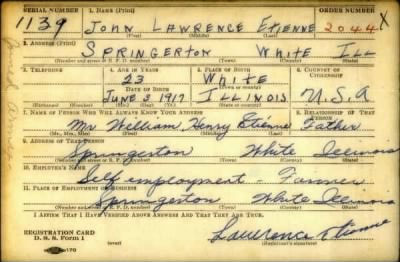 SERIAL NUMBER 1. NAME (Print) ORDER NUMBER
1139 JOHN LAWRENCE ETIENNE 2044 X
(First) (Middle) (Last)
2. ADDRESS (Print)
SPRINGERTON WHITE ILL
(Number and street or R. F. D. number) (Town) (County) (State)
3. TELEPHONE 4. AGE IN YEARS 5. PLACE OF BIRTH 6. COUNTRY OF CITIZENSHIP
23 WHITE
DATE OF BIRTH (Town or county)
JUNE 3 1917 ILLINOIS U.S.A
(Exchange) (Number) (Mo.) (Day) (Yr.) (State or country)
7. NAME OF PERSON WHO WILL ALWAYS KNOW YOUR ADDRESS 8. RELATIONSHIP OF THAT PERSON
Mr William Henry Etienne Father
(Mr., Mrs., Miss) (First) (Middle) (Last)
9. ADDRESS OF THAT PERSON
Springerton White Illinois
(Number and street or R. F. D. number) (Town) (County) (State)
10. EMPLOYER'S NAME
Self employment - Farmer
11. PLACE OF EMPLOYMENT OR BUSINESS
Springerton White Illinois
(Number and street or R. F. D. number) (Town) (County) (State)
I AFFIRM THAT I HAVE VERIFIED ABOVE ANSWERS AND THAT THEY ARE TRUE.
REGISTRATION CARD
D. S. S. Form 1 Lawrence Etienne
(Registrant's signature)